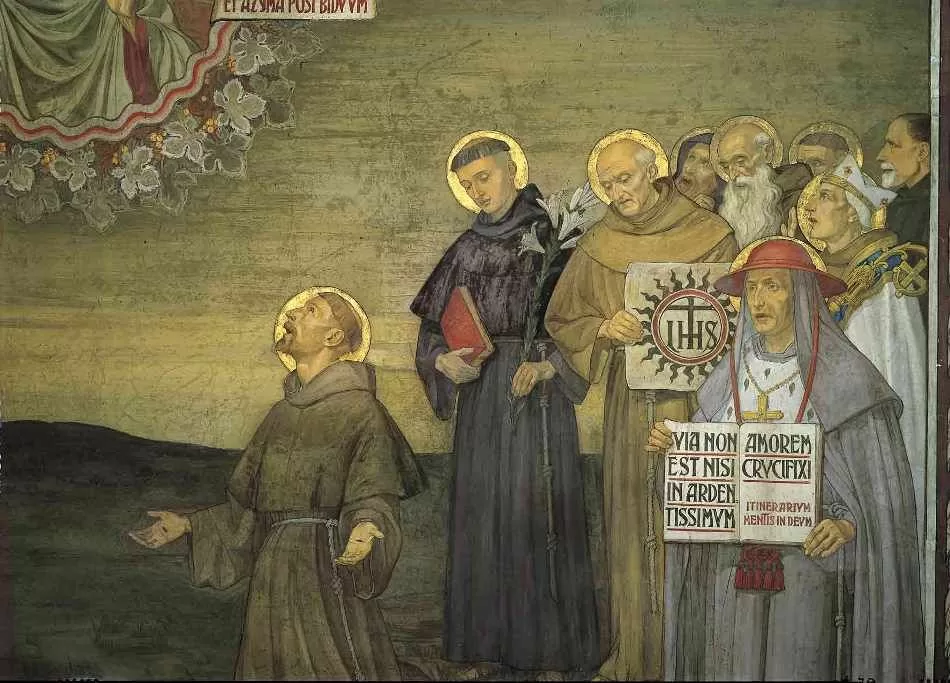 ET AZYMA POST BIDVVM
IHS
VIA NON
EST NISI
IN ARDEN
TISSIMVM
AMOREM
CRVCIFIXI
ITINERARIVM
MENTIS IN DEVM